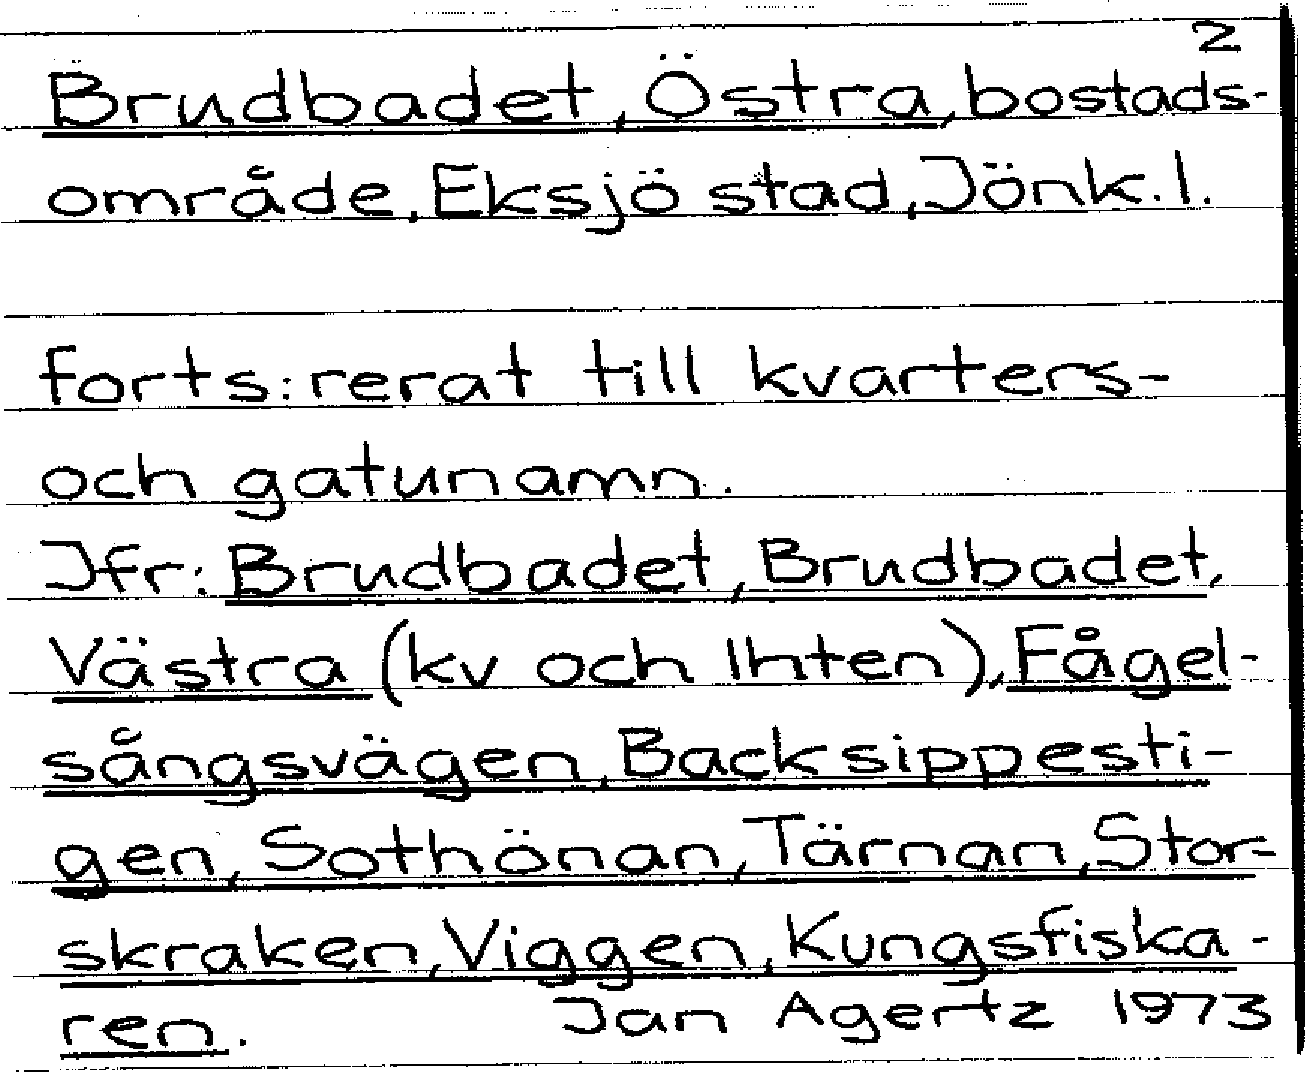 2
Brudbadet, Östra, bostads-
område, Eksjö stad, Jönk. l.
forts: rerat till kvarters-
och gatunamn.
Jfr: Brudbadet, Brudbadet,
Västra (kv och Ihten), Fågel-
sångsvägen, Backsippesti-
gen, Sothönan, Tärnan, Stor-
skraken, Viggen, Kungsfiska-
ren. Jan Agertz 1973